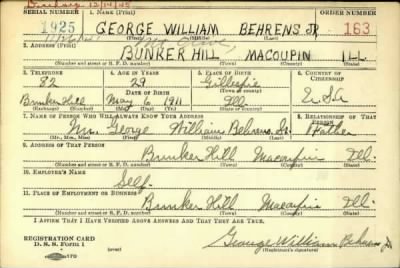 12/14/45
SERIAL NUMBER 1. NAME (Print) ORDER NUMBER
1925 GEORGE WILLIAM BEHRENS JR 163
2. ADDRESS (Print)
BUNKER HILL MACOUPIN ILL
(Number and street or R. F. D. number) (Town) (County) (State)
3. TELEPHONE 4. AGE IN YEARS 5. PLACE OF BIRTH 6. COUNTRY OF CITIZENSHIP
82 29 Gillespie
DATE OF BIRTH (Town or county)
Bunker Hill May 6 1911 Ill. U.S.A
(Exchange) (Number) (Mo.) (Day) (Yr.) (State or country)
7. NAME OF PERSON WHO WILL ALWAYS KNOW YOUR ADDRESS 8. RELATIONSHIP OF THAT PERSON
Mr. George William Behrens Sr. Father
(Mr., Mrs., Miss) (First) (Middle) (Last)
9. ADDRESS OF THAT PERSON
Bunker Hill Macoupin Ill.
(Number and street or R. F. D. number) (Town) (County) (State)
10. EMPLOYER'S NAME
Self.
11. PLACE OF EMPLOYMENT OR BUSINESS
Bunker Hill Macoupin Ill.
(Number and street or R. F. D. number) (Town) (County) (State)
I AFFIRM THAT I HAVE VERIFIED ABOVE ANSWERS AND THAT THEY ARE TRUE.
REGISTRATION CARD
D. S. S. Form 1 George William Behrens Jr
(Registrant's signature)